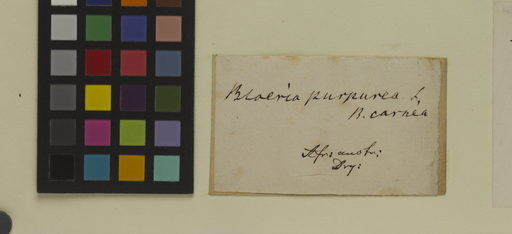 Blaeria purpurea L,
B. carnea
Afr: austr:
Dry: